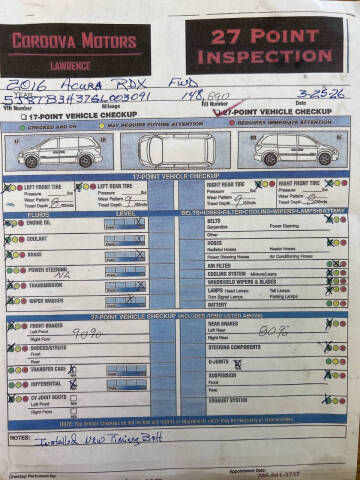 CORDOVA MOTORS
LAWRENCE
27 POINT
INSPECTION
2016 Acura RDX FWD
YEAR
148,890
3-25-26
VIN Number
Mileage
RO Number
17-POINT VEHICLE CHECKUP
27-POINT VEHICLE CHECKUP
CHECKED AND OK
MAY REQUIRE FUTURE ATTENTION
REQUIRES IMMEDIATE ATTENTION
17-POINT VEHICLE CHECKUP
LEFT FRONT TIRE
Pressure lbs
Wear Pattern
Tread Depth 9 /32nds
LEFT REAR TIRE
Pressure lbs
Wear Pattern
Tread Depth 9 /32nds
RIGHT REAR TIRE
Pressure lbs
Wear Pattern
Tread Depth 9 /32nds
RIGHT FRONT TIRE
Pressure lbs
Wear Pattern
Tread Depth /32nds
FLUIDS
LEVEL
ENGINE OIL
COOLANT
BRAKE
POWER STEERING
NA
TRANSMISSION
WIPER WASHER
BELTS-HOSES-FILTER-COOLING-WIPERS-LAMPS-BATTERY
BELTS
Serpentine Power Steering
Other
HOSES
Radiator Hoses Heater Hoses
Power Steering Hoses Air Conditioning Hoses
AIR FILTER
COOLING SYSTEM Mixture/Leaks
WINDSHIELD WIPERS & BLADES
LAMPS Head Lamps Tail Lamps
Turn Signal Lamps Parking Lamps
BATTERY
27-POINT VEHICLE CHECKUP (INCLUDES ITEMS LISTED ABOVE)
FRONT BRAKES
Left Front
Right Front
90%
SHOCKS/STRUTS
Front
Rear
TRANSFER CASE
DIFFERENTIAL
CV JOINT BOOTS
Left Front
Right Front
REAR BRAKES
Left Rear
Right Rear
80%
STEERING COMPONENTS
U-JOINTS
SUSPENSION
Front
Rear
EXHAUST SYSTEM
NOTES:
Installed New Timing Belt
Checkup Performed By:
Appointment Date: